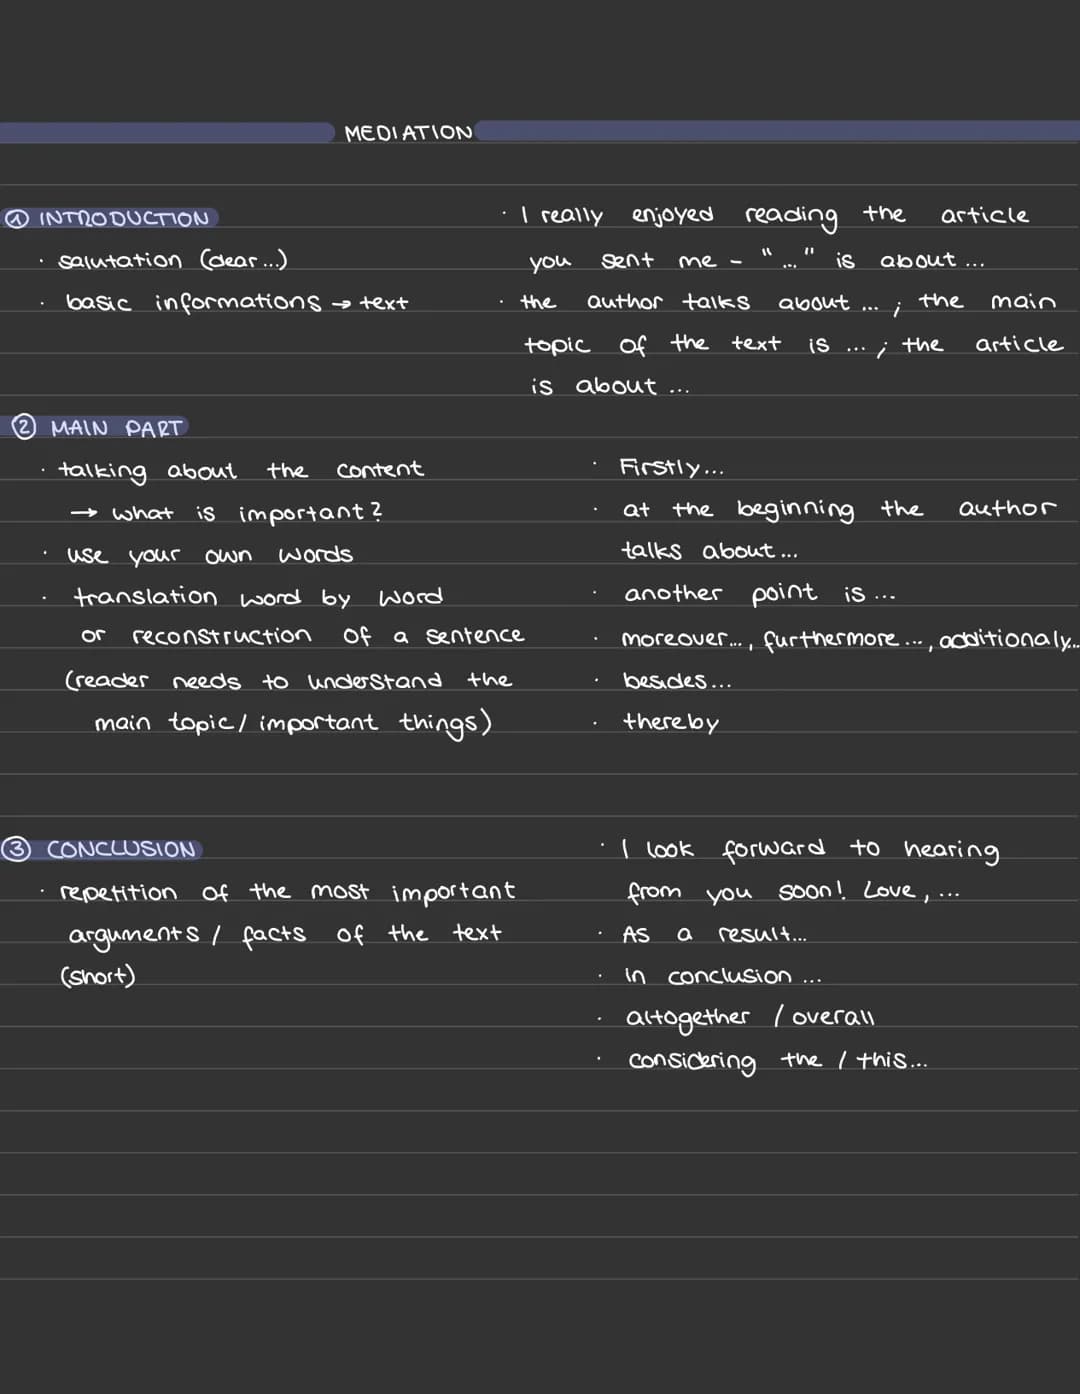 MEDIATION
① INTRODUCTION
· salutation (dear ...)
· basic informations → text
· I really enjoyed reading the article
you sent me - "..." is about ...
· the author talks about ... ; the main
topic of the text is ... ; the article
is about ...
② MAIN PART
· talking about the content
→ what is important?
· use your own words
· translation word by word
or reconstruction of a sentence
(reader needs to understand the
main topic / important things)
· Firstly...
· at the beginning the author
talks about ...
· another point is ...
· moreover..., furthermore ..., additionaly...
· besides ...
· thereby
③ CONCLUSION
· repetition of the most important
arguments / facts of the text
(short)
· I look forward to hearing
from you soon! Love, ...
· As a result...
· in conclusion ...
· altogether / overall
· considering the / this...